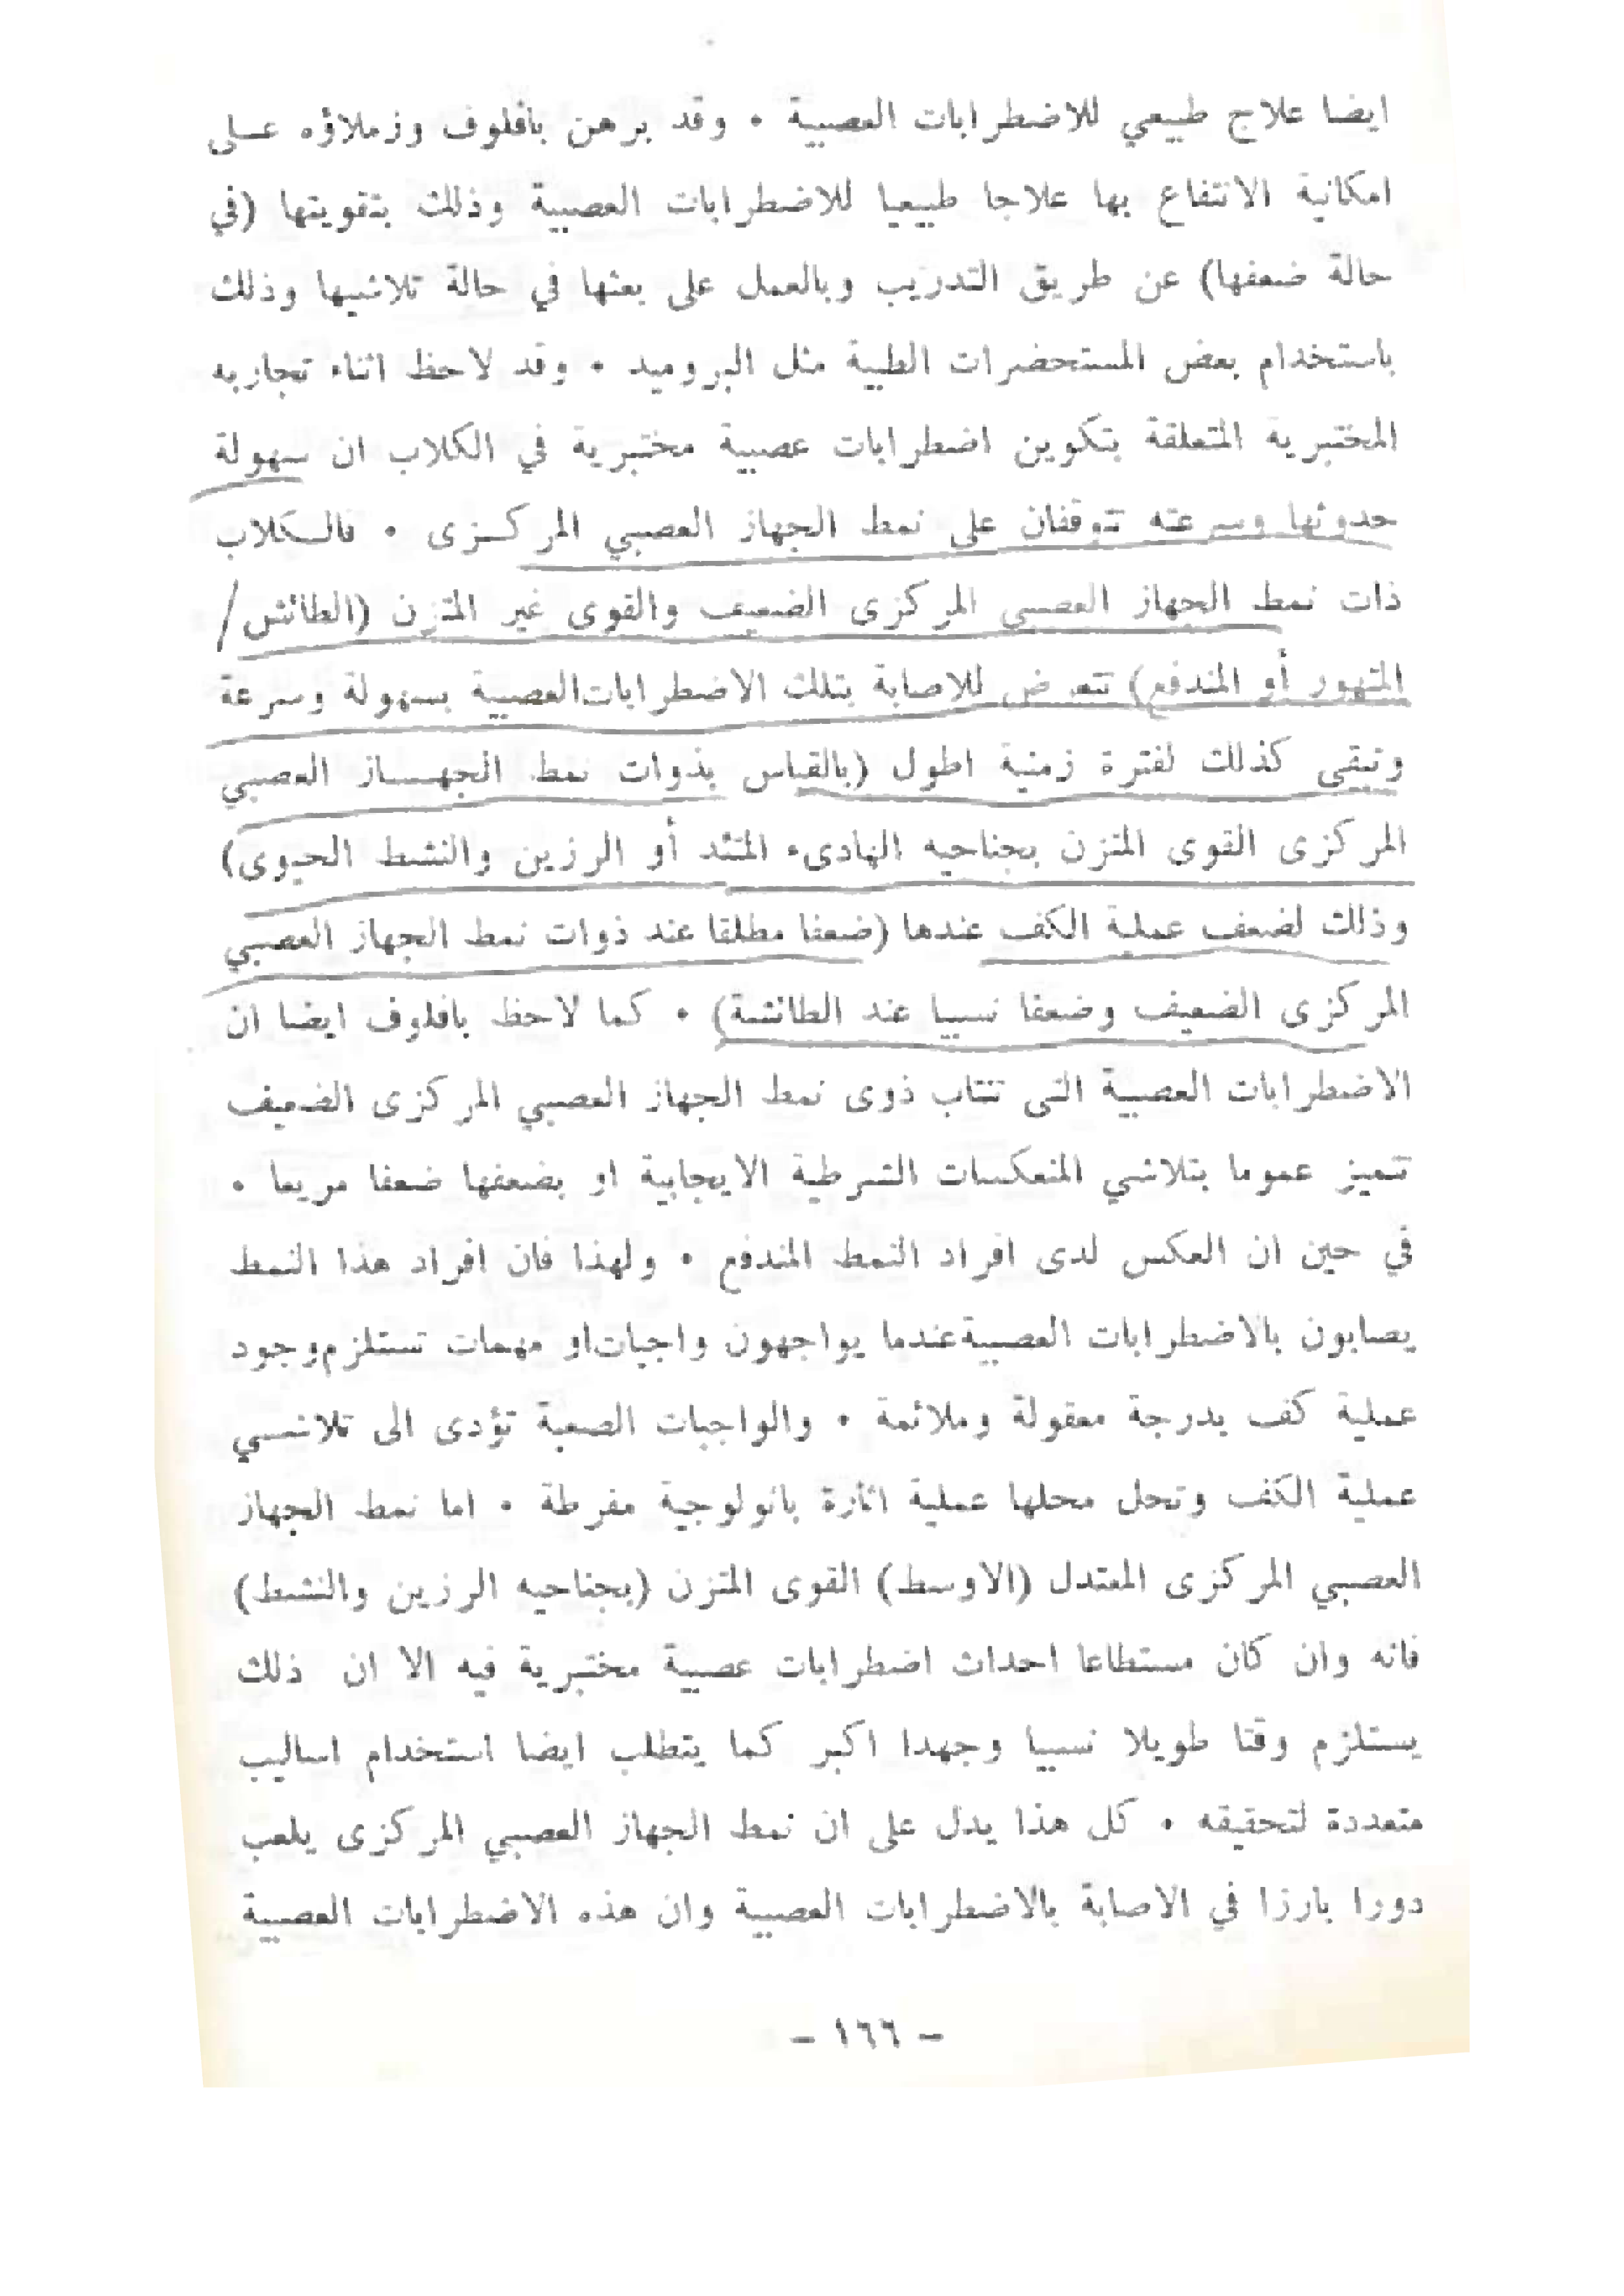 ايضا علاج طبيعي للاضطرابات العصبية • وقد برهن بافلوف وزملاؤه عـلى
امكانية الانتفاع بها علاجا طبيعيا للاضطرابات العصبية وذلك بتقويتها (في
حالة ضعفها) عن طريق التدريب وبالعمل على بعثها في حالة تلاشيها وذلك
باستخدام بعض المستحضرات الطبية مثل البروميد • وقد لاحظ اثناء تجاربه
المختبرية المتعلقة بتكوين اضطرابات عصبية مختبرية في الكلاب ان سهولة
حدوثها وسرعته تتوقفان على نمط الجهاز العصبي المركـزى • فالـكلاب
ذات نمط الجهاز العصبي المركزى الضعيف والقوى غير المتزن (الطائش/
المتهور أو المندفع) تتعرض للاصابة بتلك الاضطرابات العصبية بسهولة وسرعة
وتبقى كذلك لفترة زمنية اطول (بالقياس بذوات نمط الجهـــاز العصبي
المركزى القوى المتزن بجناحيه الهادىء المتئد أو الرزين والنشط الحيوى)
وذلك لضعف عملية الكف عندها (ضعفا مطلقا عند ذوات نمط الجهاز العصبي
المركزى الضعيف وضعفا نسبيا عند الطائشة) • كما لاحظ بافلوف ايضا ان
الاضطرابات العصبية التى تنتاب ذوى نمط الجهاز العصبي المركزى الضعيف
تتميز عموما بتلاشي المنعكسات الشرطية الايجابية او بضعفها ضعفا مريعا •
في حين ان العكس لدى افراد النمط المندفع • ولهذا فان افراد هذا النمط
يصابون بالاضطرابات العصبية عندما يواجهون واجبات او مهمات تستلزم وجود
عملية كف بدرجة معقولة وملائمة • والواجبات الصعبة تؤدى الى تلاشـي
عملية الكف وتحل محلها عملية اثارة باثولوجية مفرطة • اما نمط الجهاز
العصبي المركزى المعتدل (الاوسط) القوى المتزن (بجناحيه الرزين والنشط)
فانه وان كان مستطاعا احداث اضطرابات عصبية مختبرية فيه الا ان ذلك
يستلزم وقتا طويلا نسبيا وجهدا اكبر كما يتطلب ايضا استخدام اساليب
متعددة لتحقيقه • كل هذا يدل على ان نمط الجهاز العصبي المركزى يلعب
دورا بارزا في الاصابة بالاضطرابات العصبية وان هذه الاضطرابات العصبية
– ١٦٦ –